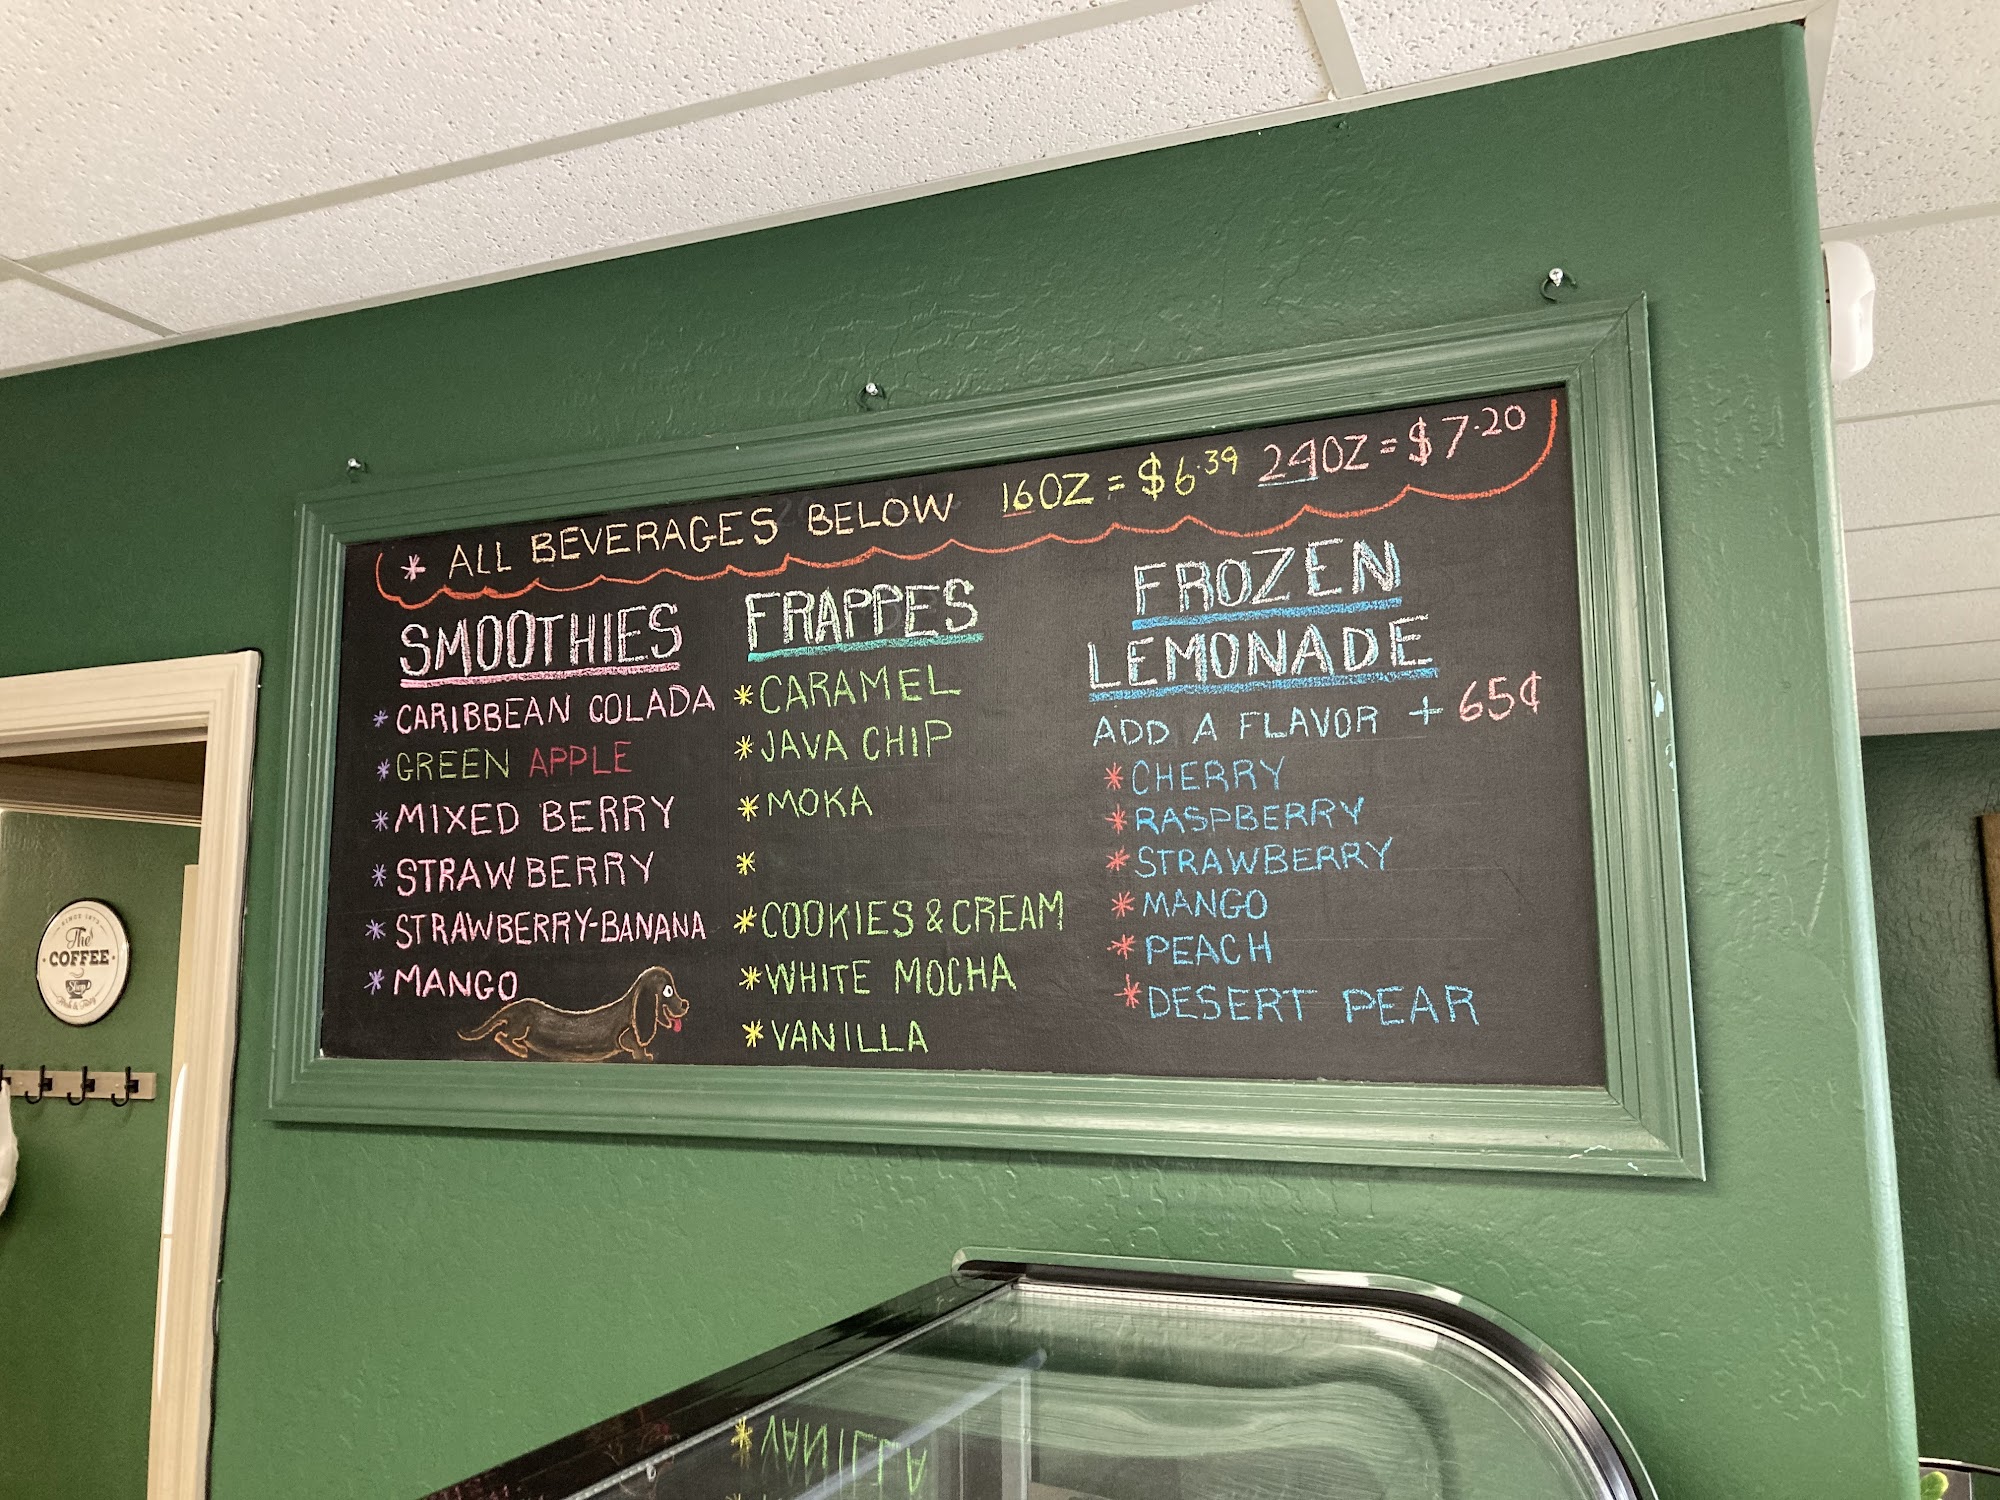 * ALL BEVERAGES BELOW 16OZ = $6.39 24OZ = $7.20
SMOOTHIES
* CARIBBEAN COLADA
* GREEN APPLE
* MIXED BERRY
* STRAWBERRY
* STRAWBERRY-BANANA
* MANGO
FRAPPES
* CARAMEL
* JAVA CHIP
* MOKA
*
* COOKIES & CREAM
* WHITE MOCHA
* VANILLA
FROZEN
LEMONADE
ADD A FLAVOR + 65¢
* CHERRY
* RASPBERRY
* STRAWBERRY
* MANGO
* PEACH
* DESERT PEAR
The
COFFEE
Shop
* VANILLA